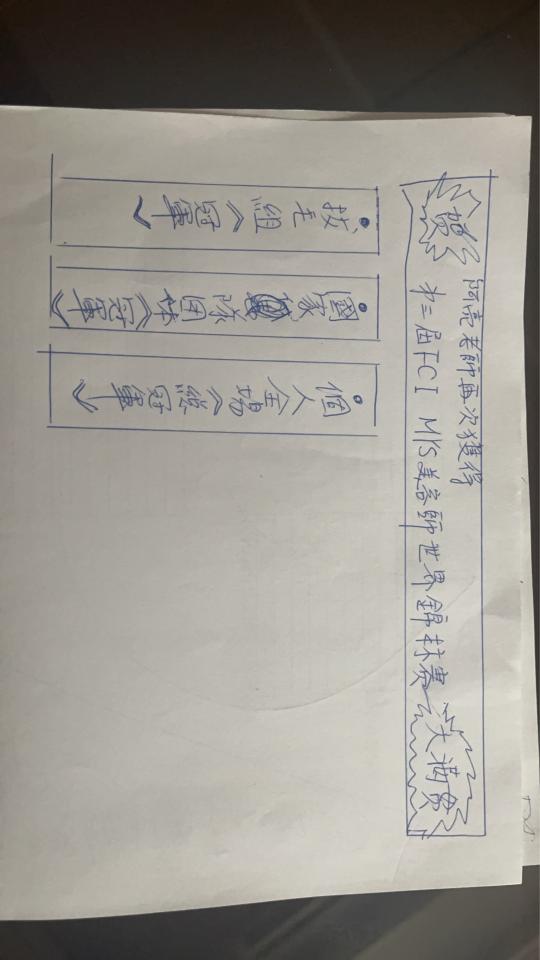 賀
阿亮老師再次獲得
第二屆FCI M/S美容師世界錦标賽
大滿貫
• 拔毛組《冠軍》
• 國家隊团体《冠軍》
• 個人全場《總冠軍》